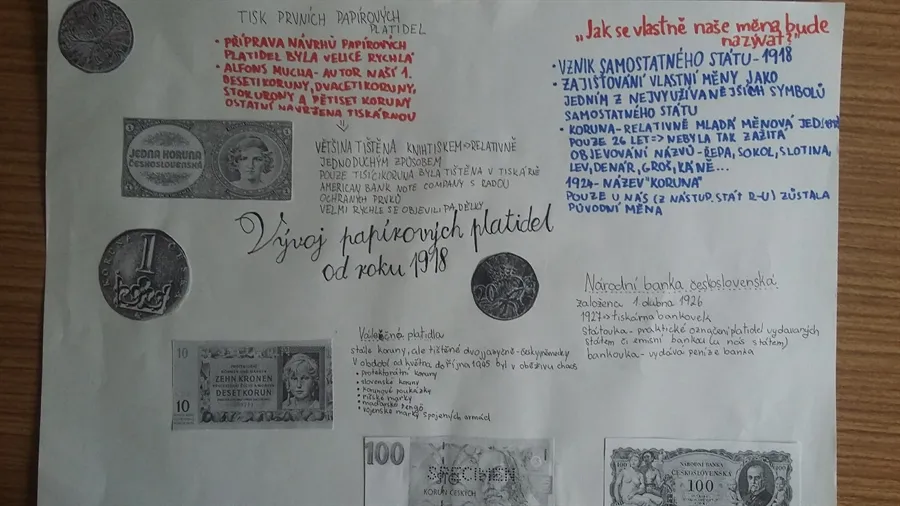 TISK PRVNÍCH PAPÍROVÝCH
PLATIDEL
• PŘÍPRAVA NÁVRHŮ PAPÍROVÝCH
PLATIDEL BYLA VELICE RYCHLÁ
• ALFONS MUCHA - AUTOR NAŠÍ 1.
DESETIKORUNY, DVACETIKORUNY,
STOKORUNY A PĚTISET KORUNY
OSTATNÍ NAVRŽENA TISKÁRNOU
VĚTŠINA TIŠTĚNA KNIHTISKEM → RELATIVNĚ
JEDNODUCHÝM ZPŮSOBEM
POUZE TISÍCIKORUNA BYLA TIŠTĚNA V TISKÁRNĚ
AMERICAN BANK NOTE COMPANY S ŘADOU
OCHRANÝCH PRVKŮ
VELMI RYCHLE SE OBJEVILI PADĚLKY
„Jak se vlastně naše měna bude
nazývat?"
• VZNIK SAMOSTATNÉHO STÁTU - 1918
• ZAJIŠŤOVÁNÍ VLASTNÍ MĚNY JAKO
JEDNÍM Z NEJVYUŽÍVANĚJŠÍCH SYMBOLŮ
SAMOSTATNÉHO STÁTU
• KORUNA - RELATIVNĚ MLADÁ MĚNOVÁ
POUZE 26 LET => NEBYLA TAK ZAŽITÁ
OBJEVOVÁNÍ NÁZVŮ - ŘEPA, SOKOL, SLOTINA,
LEV, DENÁR, GROŠ, KÁNĚ...
1924 - NÁZEV "KORUNA"
POUZE U NÁS (Z NÁSTUP. STÁT R-U) ZŮSTALA
PŮVODNÍ MĚNA
JEDNA KORUNA
ČESKOSLOVENSKÁ
Vývoj papírových platidel
od roku 1918
1
KORUNA
20
Národní banka československá
založena 1. dubna 1926
1927 → tiskárna bankovek
Státovka - praktické označení platidel vydávaných
státem či emisní bankou (u nás státem)
bankovka - vydává peníze banka
Válečná platidla
stále koruny, ale tištěné dvojjazyčně - českyněmecky
V období od května do října 1945 byl v oběživu chaos
• protektorátní koruny
• slovenské koruny
• korunové poukázky
• říšské marky
• maďarské pengő
• vojenské marky spojených armád
10
ZEHN KRONEN
DESET KORUN
10
100
SPECIMEN
KORUN ČESKÝCH
100
NÁRODNÍ BANKA
ČESKOSLOVENSKÁ
100
100